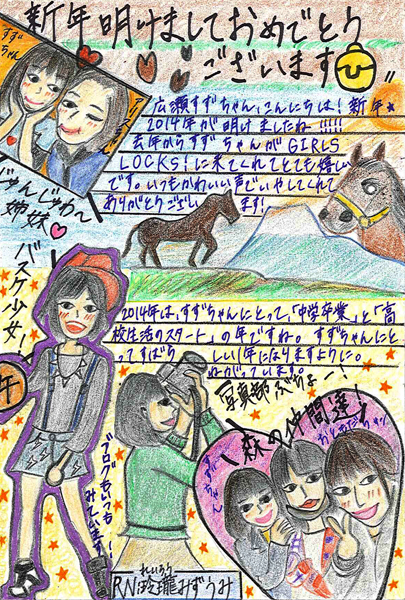 新年明けましておめでとう
ございます
すずちゃん
広瀬すずちゃん、こんにちは！新年
2014年が明けましたね!!!!!
去年からすずちゃんがGIRLS
LOCKS！に来てくれてとても嬉しい
です。いつもかわいい声でいやしてくれて
ありがとうございます！
じゅんじゅわ〜
姉妹
バスケ少女！
2014年は、すずちゃんにとって、「中学卒業」と「高
校生活のスタート」の年ですね。すずちゃんにと
ってすばらしい1年になりますように。
ねがっています。
写真部ぶちょー！
森の仲間達！
年
ブログもいつも
みています！
れいろう
RN玲瓏みずうみ